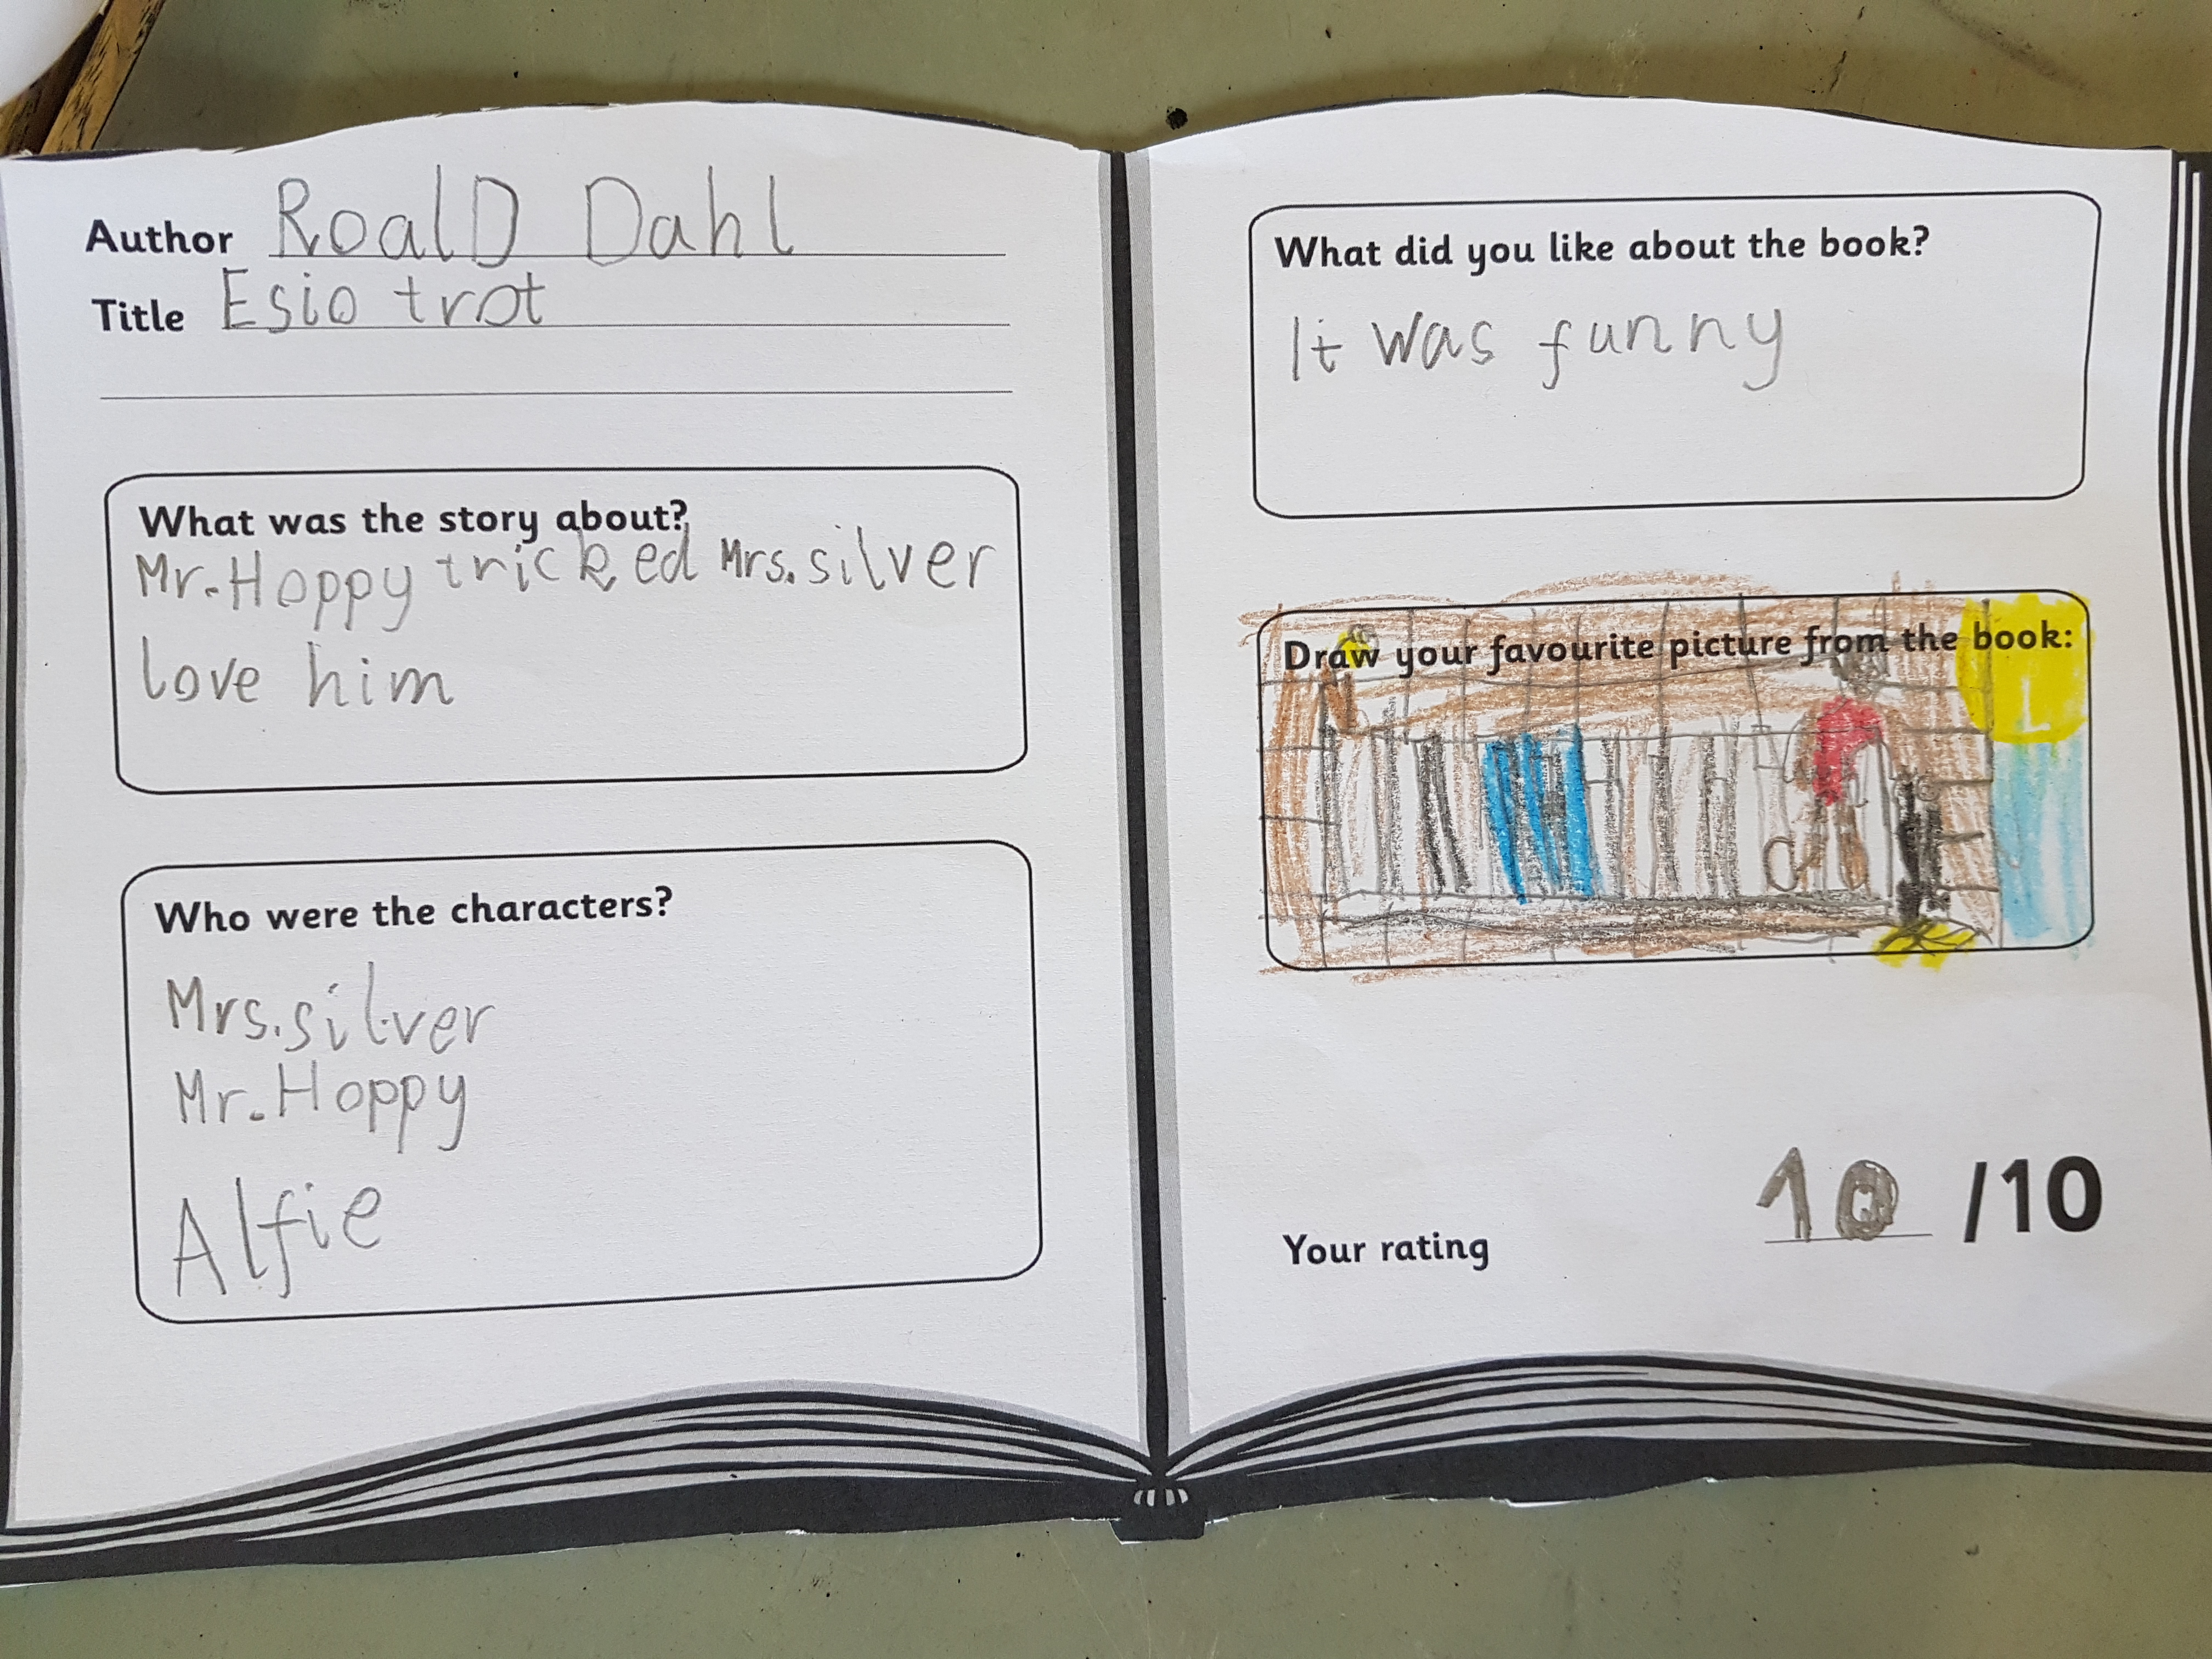 Author RoalD Dahl
Title Esio trot
What was the story about?
Mr. Hoppy tricked Mrs. silver
love him
Who were the characters?
Mrs. silver
Mr. Hoppy
Alfie
What did you like about the book?
It was funny
Draw your favourite picture from the book:
Your rating 10 /10